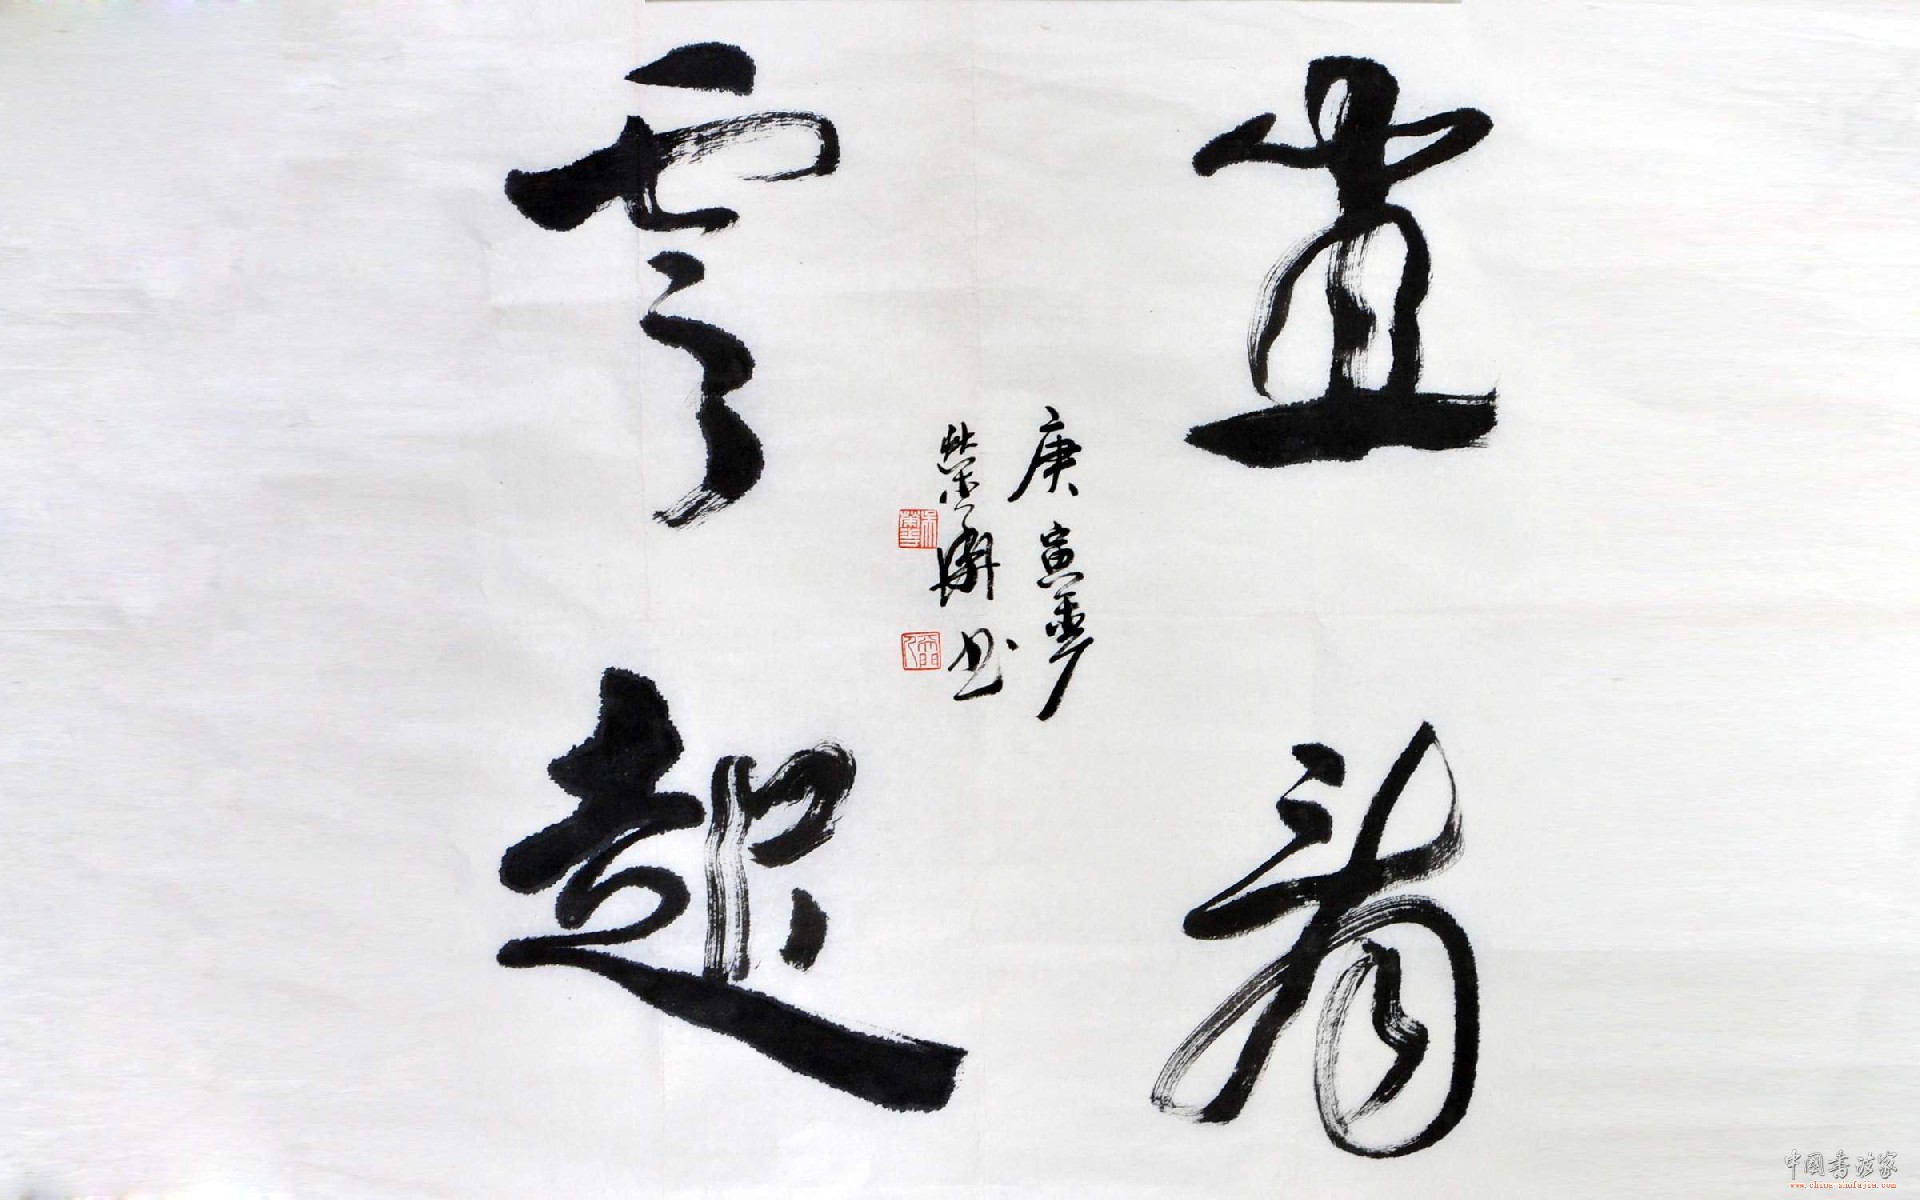 坐看
雲起
庚寅夏
榮
书
中国書法家
www.china-shufajia.com